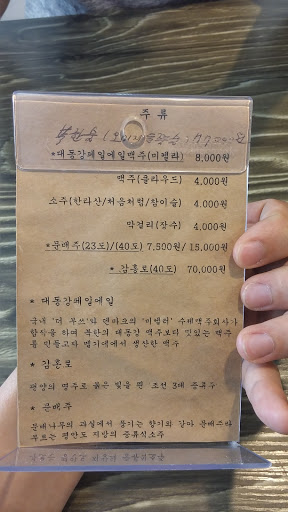 주 류
북한술
*대동강페일에일맥주(미켈러) 8,000원
맥주(클라우드) 4,000원
소주(한라산/처음처럼/참이슬) 4,000원
막걸리(장수) 4,000원
*문배주(23도)/(40도) 7,500원/ 15,000원
* 감홍로(40도) 70,000원
* 대동강페일에일
국내 '더 부쓰'와 덴마크의 '미켈러' 수제맥주회사가
합작을 하여 북한의 대동강 맥주보다 맛있는 맥주
를 만들고자 벨기에에서 생산한 맥주
* 감홍로
평양의 명주로 붉은 빛을 띤 조선 3대 증류주
* 문배주
문배나무의 과실에서 풍기는 향기와 같아 문배주라
부르는 평안도 지방의 증류식소주